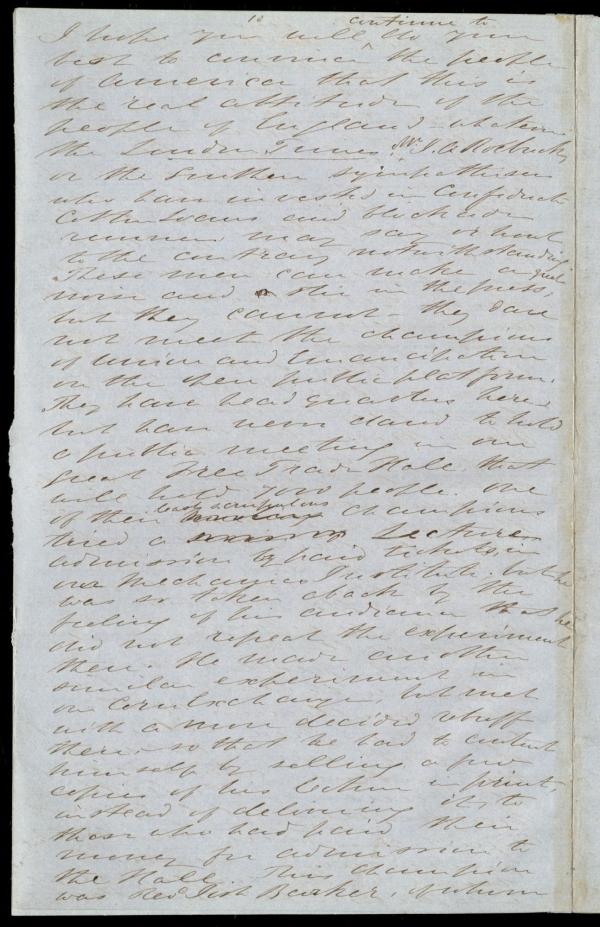 10
continue to
I hope you will do your
best to convince ^ the people
of America that this is
the real attitude of the
people of England whatever
the London Times, Mr. J. A. Roebuck,
or the Southern sympathisers
who have invested in Confederate
Cotton Loans and blockade
runners may say or shout
to the contrary notwithstanding
These men can make a great
noise and stir in the press,
but they cannot – they dare
not meet the champions
of Union and Emancipation
on the open public platform.
They have head quarters here,
but have never dared to hold
a public meeting in our
great Free Trade Hall, that
will hold 7000 people. One
of their least scrupulous champions
tried a Lecture,
admission by paid tickets, in
our Mechanics Institute, but he
was so taken aback by the
feeling of his audience that he
did not repeat the experiment
there. He made another
similar experiment in
our Corn Exchange, but met
with a more decided rebuff
there, so that he had to content
himself by selling a few
copies of his lecture in print,
instead of delivering it, to
those who had paid their
money for admission to
the Hall. This champion
was Revd Josh Barker, of whom